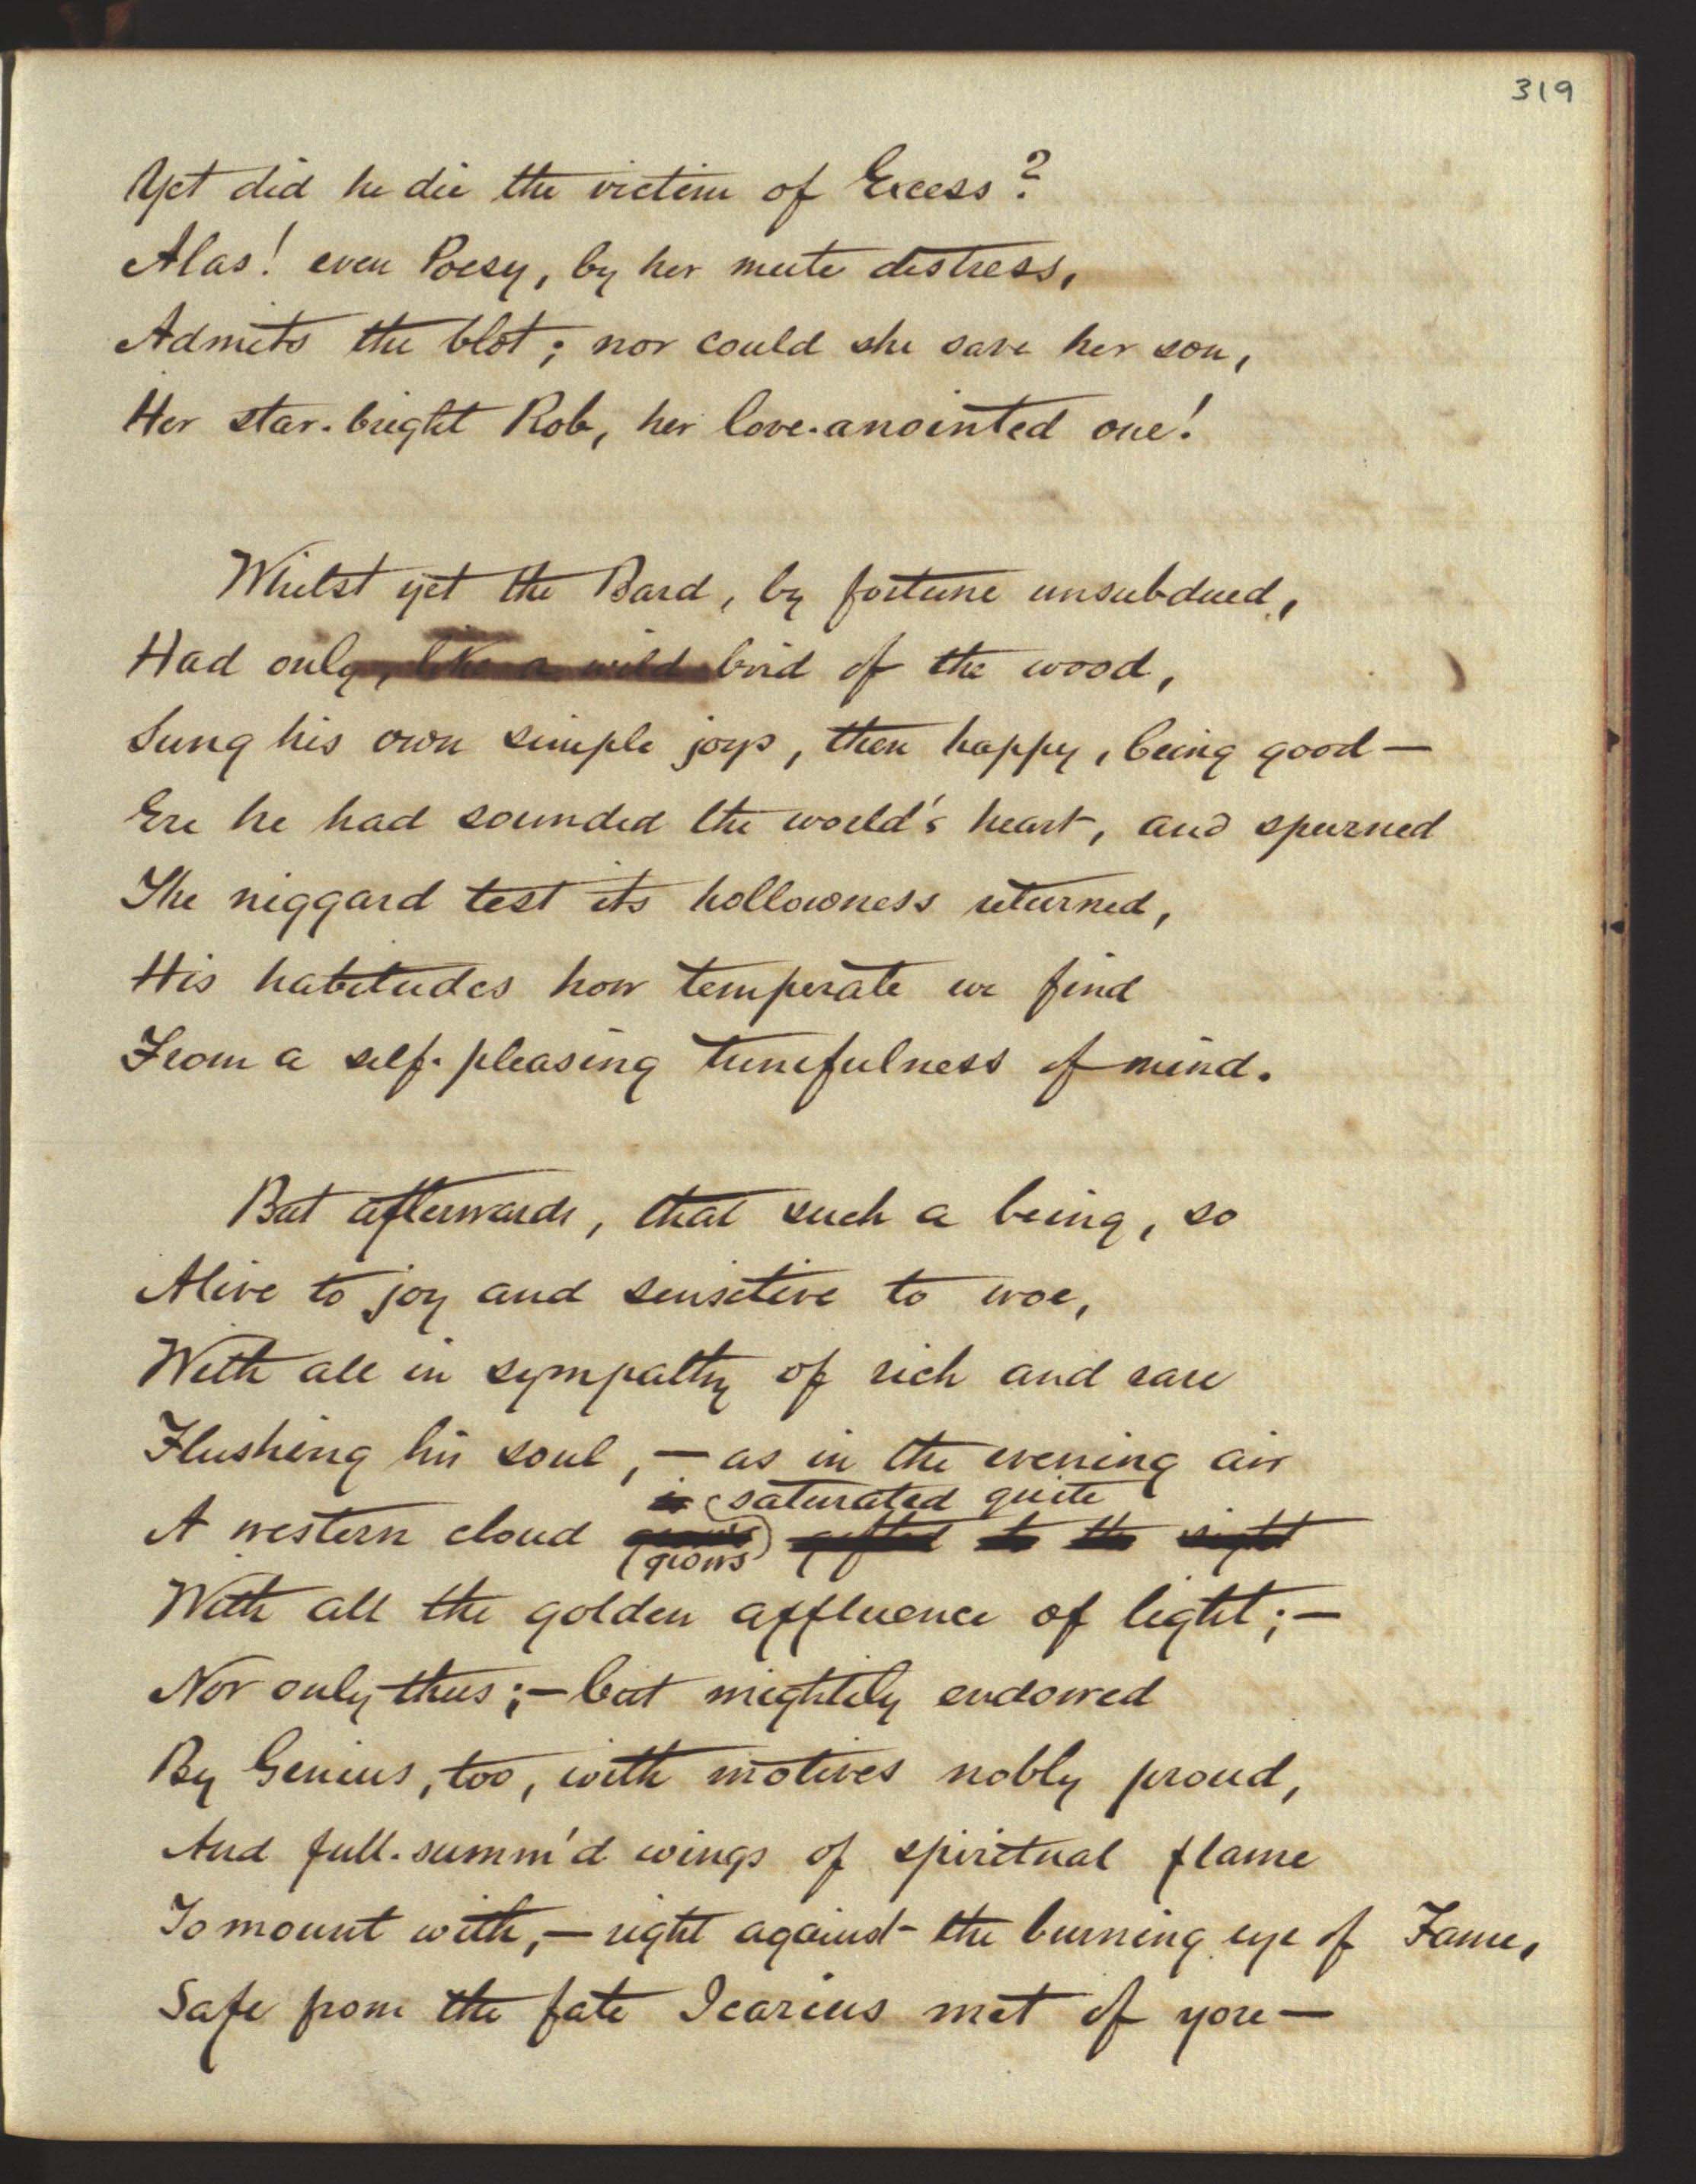 319
Yet did he die the victim of Excess?
Alas! even Poesy, by her mute distress,
Admits the blot; nor could she save her son,
Her star-bright Rob, her love-anointed one!
Whilst yet the Bard, by fortune unsubdued,
Had only, like a wild bird of the wood,
Sung his own simple joys, then happy, being good—
Ere he had sounded the world's heart, and spurned
The niggard test its hollowness returned,
His habitudes how temperate we find
From a self-pleasing tunefulness of mind.
But afterwards, that such a being, so
Alive to joy and sensitive to woe,
With all in sympathy of rich and rare
Flushing his soul,— as in the evening air
is saturated quite
A western cloud grows gifted to the sight
grows
With all the golden affluence of light;—
Nor only thus;— but mightily endowed
By Genius, too, with motives nobly proud,
And full-summ'd wings of spiritual flame
To mount with,— right against the burning eye of Fame,
Safe from the fate Icarius met of yore—